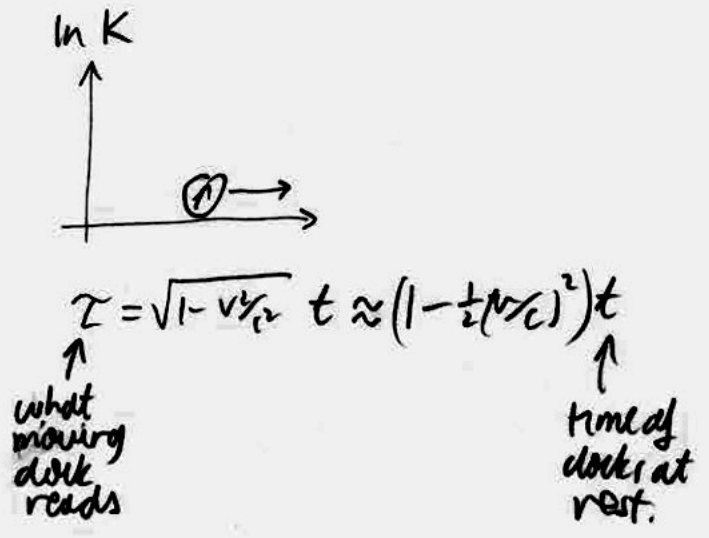 In K
τ = √1 - v²/c² t ≈ (1 - ½(v/c)²)t
what
moving
clock
reads
time of
clocks at
rest.